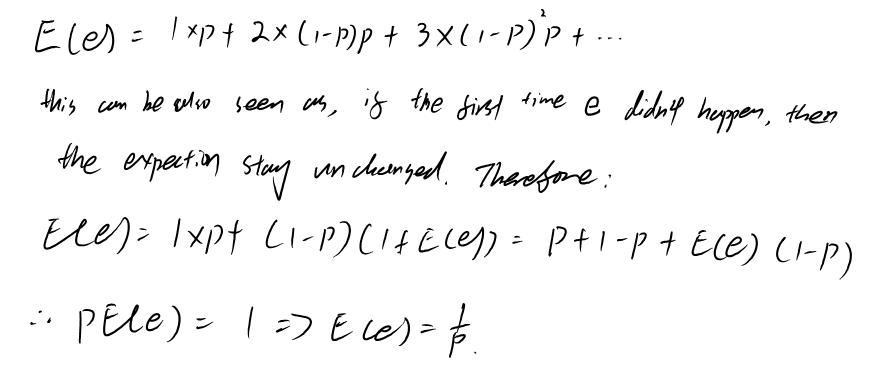 E(e) = 1×p + 2×(1-p)p + 3×(1-p)²p + ...
this can be also seen as, if the first time e didn't happen, then
the expection stay unchanged. Therefore:
E(e) = 1×p + (1-p)(1+E(e)) = p+1-p + E(e)(1-p)
∴ pE(e) = 1 => E(e) = 1/p.